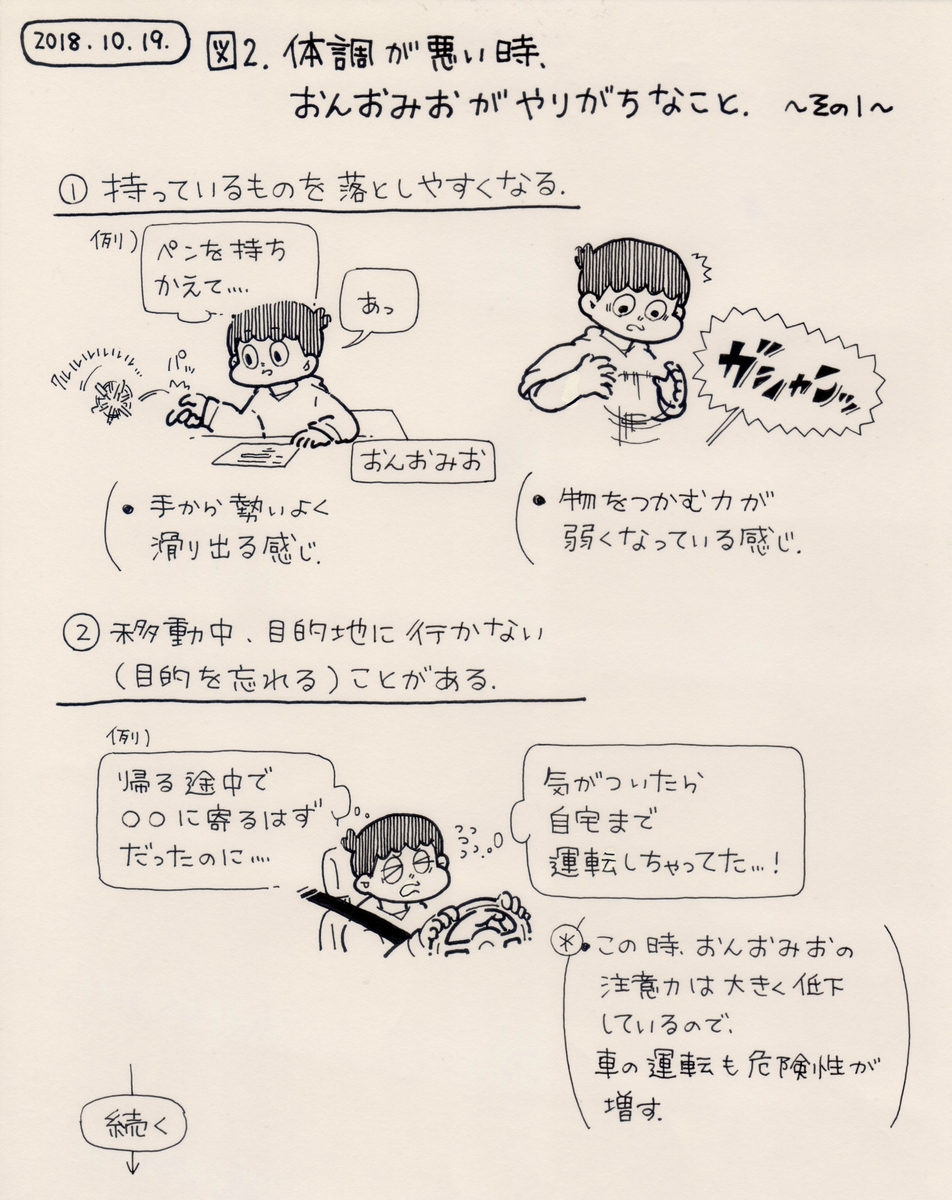 2018.10.19.
図2. 体調が悪い時、
おんおみおがやりがちなこと. 〜その1〜
① 持っているものを落としやすくなる.
例)
ペンを持ち
かえて....
あっ
パッ
クルルルルルル
おんおみお
ガシャンッ
• 手から勢いよく
滑り出る感じ.
• 物をつかむ力が
弱くなっている感じ.
② 移動中、目的地に行かない
(目的を忘れる)ことがある.
例)
帰る途中で
○○に寄るはず
だったのに....
気がついたら
自宅まで
運転しちゃってた...!
* • この時、おんおみおの
注意力は大きく低下
しているので、
車の運転も危険性が
増す.
続く